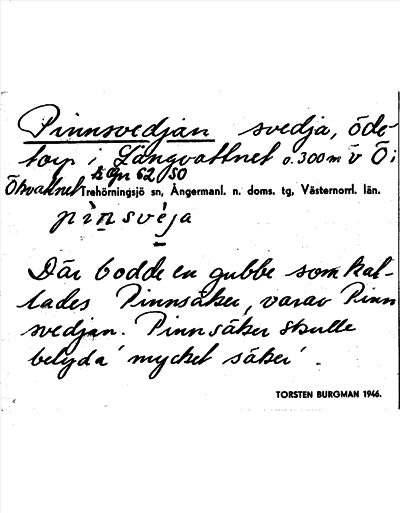 Pinnsvedjan svedja, öde-
torp i Långvattnet o. 300 m v Ö i
Övattnet Trehörningsjö sn, Ångermanl. n. doms. tg, Västernorrl. län.
62 SO
pinsveja
Där bodde en gubbe som kal-
lades Pinnsäker, varav Pinn
svedjan. Pinnsäker skulle
betyda 'mycket säker'.
TORSTEN BURGMAN 1946.